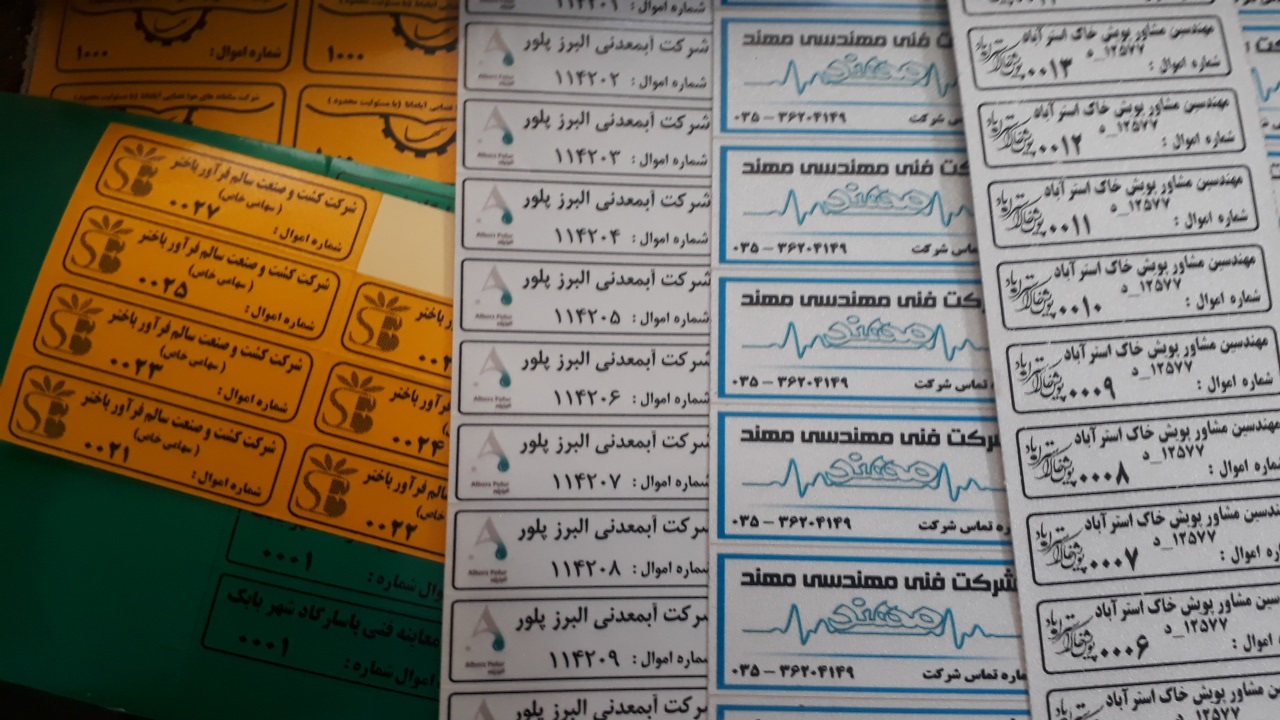 شماره اموال :
۱۰۰۰
۱۰۰۰
شرکت کشت و صنعت سالم فرآور باختر
(سهامی خاص)
شماره اموال :
۰۰۲۷
شرکت کشت و صنعت سالم فرآور باختر
(سهامی خاص)
شماره اموال :
۰۰۲۵
شرکت کشت و صنعت سالم فرآور باختر
(سهامی خاص)
شماره اموال :
۰۰۲۳
شرکت کشت و صنعت سالم فرآور باختر
(سهامی خاص)
شماره اموال :
۰۰۲۱
آور باختر
فرآور باختر
۰۰۲۴
سالم فرآور باختر
۰۰۲۲
۰۰۰۱
وال شماره :
معاینه فنی پاسارگاد شهر بابک
۰۰۰۱
اموال شماره :
شماره اموال : ۱۱۴۲۰۱
شرکت آبمعدنی البرز پلور
شماره اموال : ۱۱۴۲۰۲
شرکت آبمعدنی البرز پلور
شماره اموال : ۱۱۴۲۰۳
شرکت آبمعدنی البرز پلور
شماره اموال : ۱۱۴۲۰۴
شرکت آبمعدنی البرز پلور
شماره اموال : ۱۱۴۲۰۵
شرکت آبمعدنی البرز پلور
شماره اموال : ۱۱۴۲۰۶
شرکت آبمعدنی البرز پلور
شماره اموال : ۱۱۴۲۰۷
شرکت آبمعدنی البرز پلور
شماره اموال : ۱۱۴۲۰۸
شرکت آبمعدنی البرز پلور
شماره اموال : ۱۱۴۲۰۹
شرکت آبمعدنی البرز پلور
شرکت فنی مهندسی مهند
شرکت
۰۳۵ – ۳۶۲۰۴۱۴۹
شرکت فنی مهندسی مهند
تماس شرکت
۰۳۵ – ۳۶۲۰۴۱۴۹
شرکت فنی مهندسی مهند
تماس شرکت
۰۳۵ – ۳۶۲۰۴۱۴۹
شرکت فنی مهندسی مهند
ه تماس شرکت
۰۳۵ – ۳۶۲۰۴۱۴۹
شرکت فنی مهندسی مهند
ماره تماس شرکت
۰۳۵ – ۳۶۲۰۴۱۴۹
مهندسین مشاور پویش خاک استرآباد
۱۲۵۷۷_د
شماره اموال : ۰۰۱۳
مهندسین مشاور پویش خاک استرآباد
۱۲۵۷۷_د
شماره اموال : ۰۰۱۲
مهندسین مشاور پویش خاک استرآباد
۱۲۵۷۷_د
شماره اموال : ۰۰۱۱
مهندسین مشاور پویش خاک استرآباد
۱۲۵۷۷_د
شماره اموال : ۰۰۱۰
مهندسین مشاور پویش خاک استرآباد
۱۲۵۷۷_د
شماره اموال : ۰۰۰۹
مهندسین مشاور پویش خاک استرآباد
۱۲۵۷۷_د
ماره اموال : ۰۰۰۸
مهندسین مشاور پویش خاک استرآباد
۱۲۵۷۷_د
ه اموال : ۰۰۰۷
سین مشاور پویش خاک استرآباد
۱۲۵۷۷_د
اموال : ۰۰۰۶
مشاور پویش خاک استرآباد